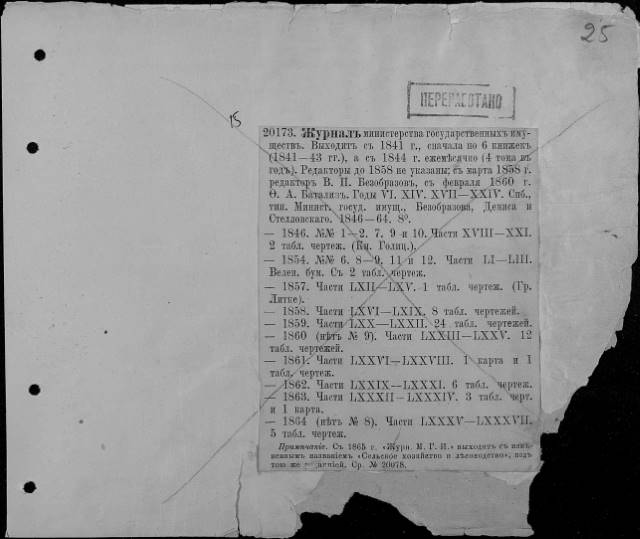 25
ПЕРЕРАБОТАНО
15
20173. Журналъ министерства государственныхъ иму-
ществъ. Выходитъ съ 1841 г., сначала по 6 книжекъ
(1841—43 гг.), а съ 1844 г. ежемѣсячно (4 тома въ
годъ). Редакторы до 1858 не указаны; съ марта 1858 г.
редакторъ В. П. Безобразовъ, съ февраля 1860 г.
Ѳ. А. Баталинъ. Годы VI. XIV. XVII—XXIV. Спб.,
тип. Минист. госуд. имущ., Безобразова, Дениса и
Стелловскаго. 1846—64. 8°.
— 1846. №№ 1—2. 7. 9 и 10. Части XVIII—XXI.
2 табл. чертеж. (Кн. Голиц.).
— 1854. №№ 6. 8—9. 11 и 12. Части LI—LIII.
Велен. бум. Съ 2 табл. чертеж.
— 1857. Части LXII—LXV. 1 табл. чертеж. (Гр.
Литке).
— 1858. Части LXVI—LXIX. 8 табл. чертежей.
— 1859. Части LXX—LXXII. 24 табл. чертежей.
— 1860 (нѣтъ № 9). Части LXXIII—LXXV. 12
табл. чертежей.
— 1861. Части LXXVI—LXXVIII. 1 карта и 1
табл. чертеж.
— 1862. Части LXXIX—LXXXI. 6 табл. чертеж.
— 1863. Части LXXXII—LXXXIV. 3 табл. черт.
и 1 карта.
— 1864 (нѣтъ № 8). Части LXXXV—LXXXVII.
5 табл. чертеж.
Примѣчаніе. Съ 1865 г. «Журн. М. Г. И.» выходитъ съ измѣ-
неннымъ названіемъ «Сельское хозяйство и лѣсоводство», подъ
тою же редакціей. Ср. № 20078.